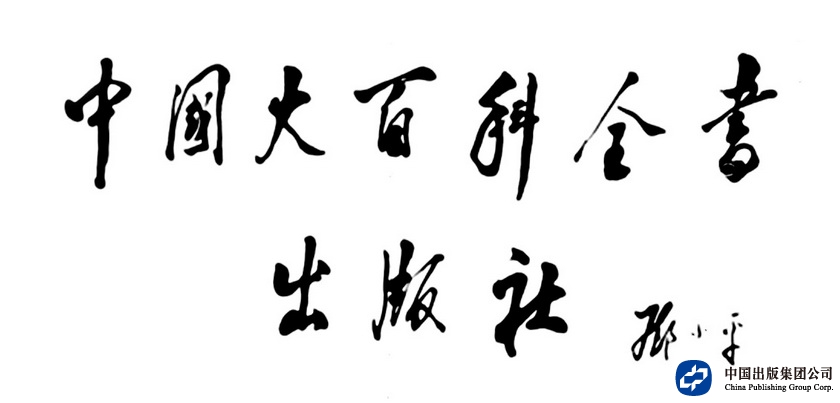 中国大百科全書
出版社
邓小平
中国出版集团公司
China Publishing Group Corp.